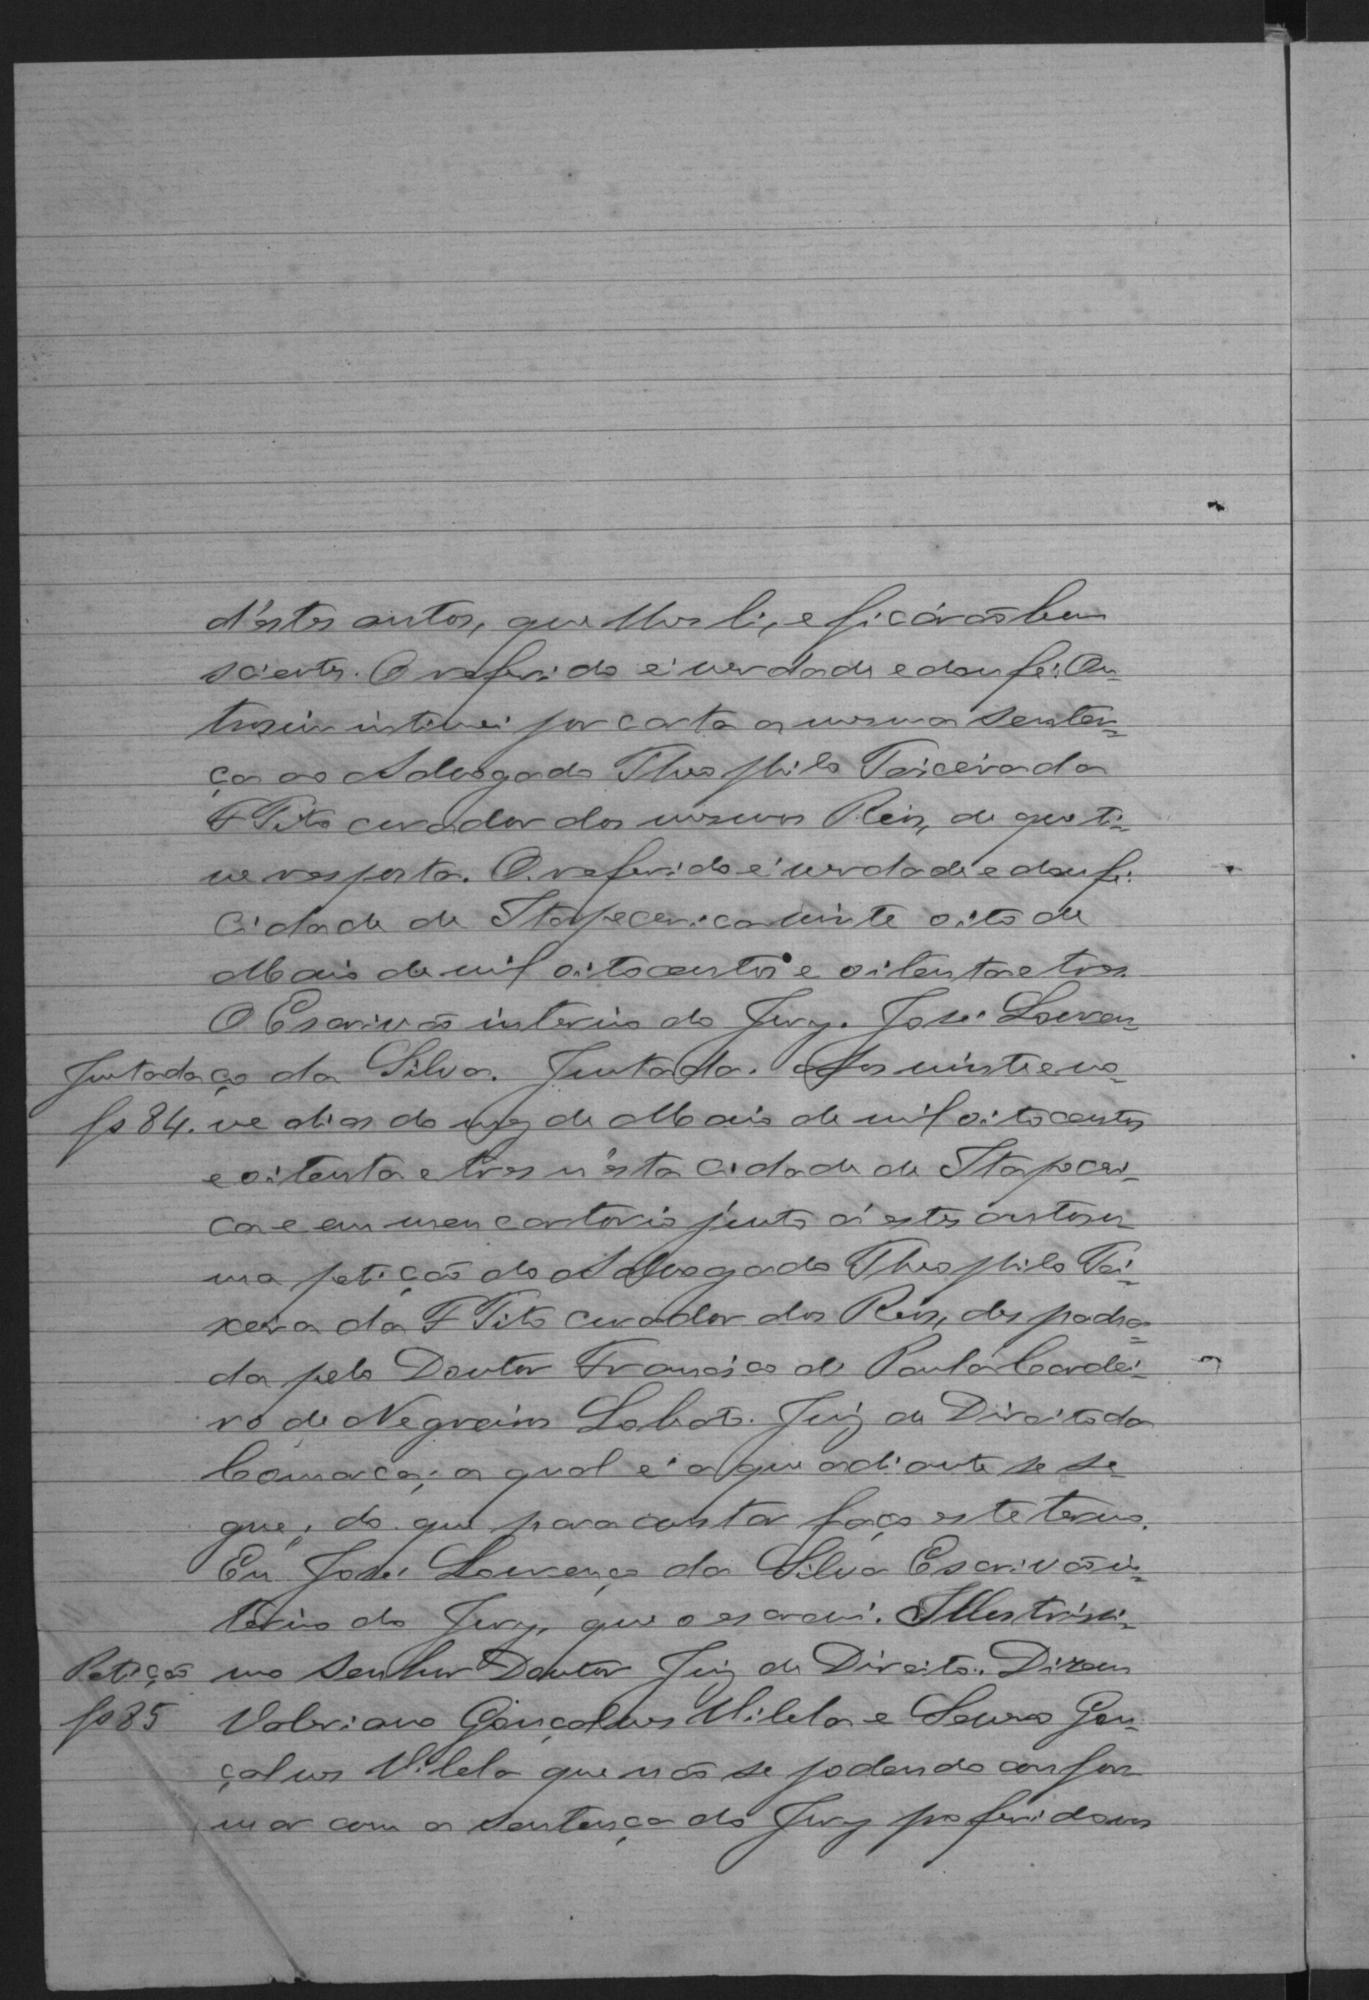 d'estes autos, que lhes li, e ficárão bem
scientes. O referido é verdade e dou fé: Ou=
trosim intimei por carta a mesma senten=
ça ao Advogado Theophilo Teixeira da
F Tito curador dos mesmos Reos, de que ti=
ve resposta. O referido é verdade e dou fé.
Cidade de Itapecerica vinte oito de
Maio de mil oitocentos e oitenta e tres.
O Escrivão interino do Jury. José Louren=
Juntada ço da Silva. Juntada. Aos vinte e no=
fs 84. ve dias do mez de Maio de mil oitocentos
e oitenta e tres n'esta Cidade de Itapeceri=
ca e em meu cartorio junto á estes autos u
ma petição do Advogado Theophilo Tei=
xeira da F Tito curador dos Reos, despacha=
da pelo Doutor Francisco de Paula Cordei=
ro de Negreiros Lobato. Juiz de Direito da
Comarca; a qual é a que adiante se se=
gue, do que para constar faço este termo.
Eu José Lourenço da Silva Escrivão in=
terino do Jury, que o escrevi. Illustrissi=
Petição mo Senhor Doutor Juiz de Direito. Dizem
fs 85 Valeriano Gonçalves Vilela e Lauro Gon=
çalves Vilela que não se podendo confor
mar com a sentença do Jury proferida nos